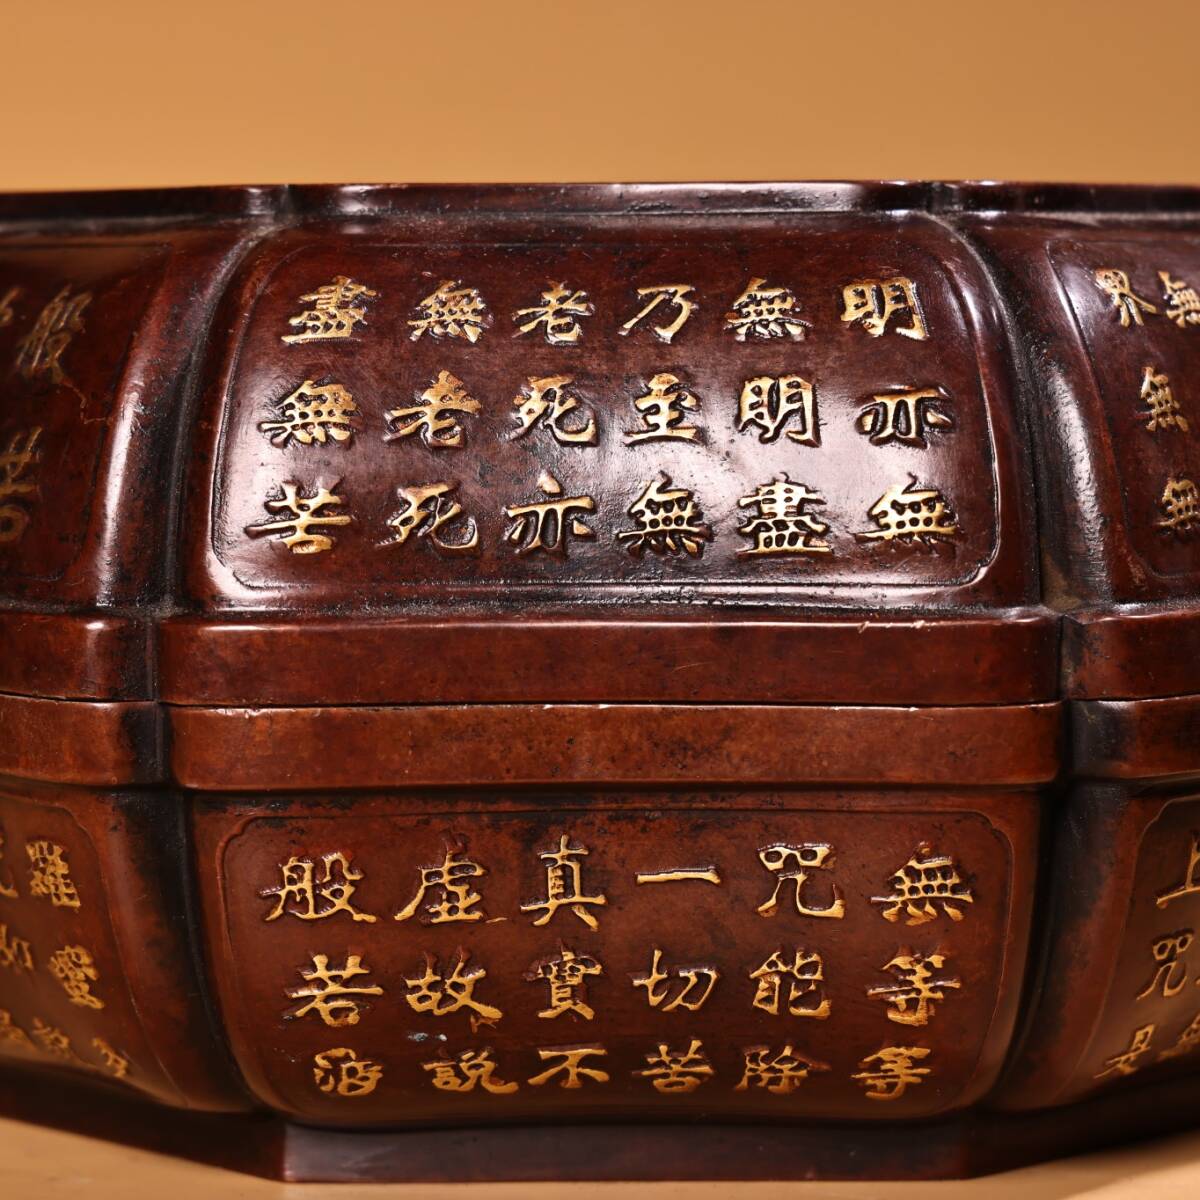 無
界無無
明亦無
無明盡
乃至無
老死亦
無老死
盡無苦
般
上咒是
無等等
咒能除
一切苦
真實不
虛故說
般若波
羅